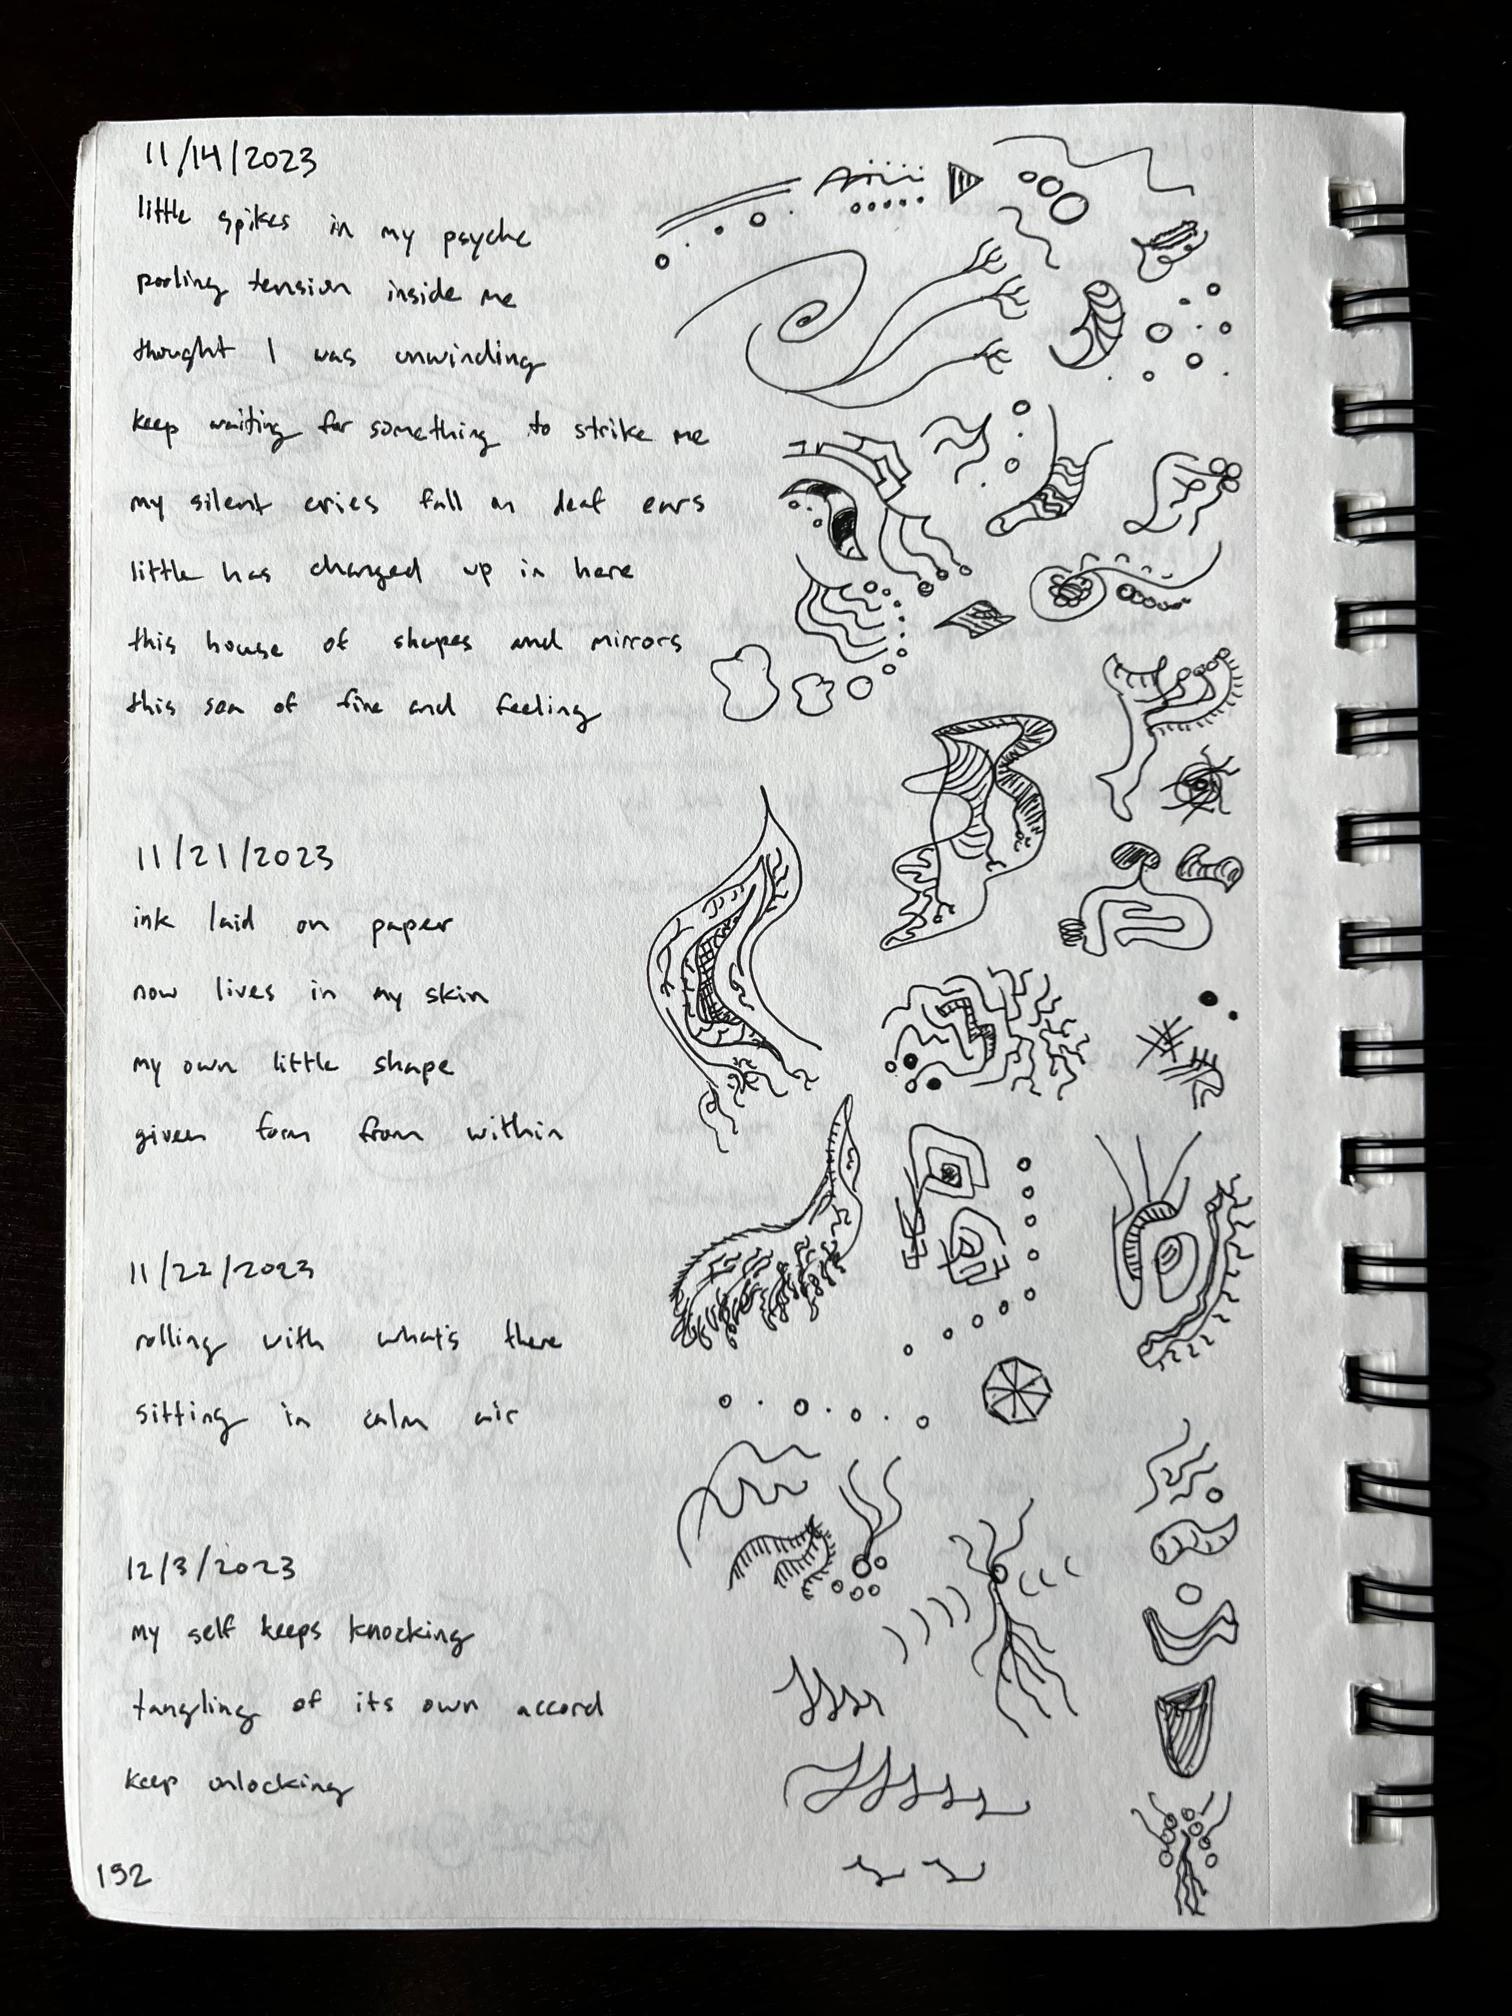 11/14/2023
little spikes in my psyche
pooling tension inside me
thought I was unwinding
keep waiting for something to strike me
my silent cries fall on deaf ears
little has changed up in here
this house of shapes and mirrors
this sea of fire and feeling
11/21/2023
ink laid on paper
now lives in my skin
my own little shape
given form from within
11/22/2023
rolling with what's there
sitting in calm air
12/3/2023
my self keeps knocking
tangling of its own accord
keep unlocking
192